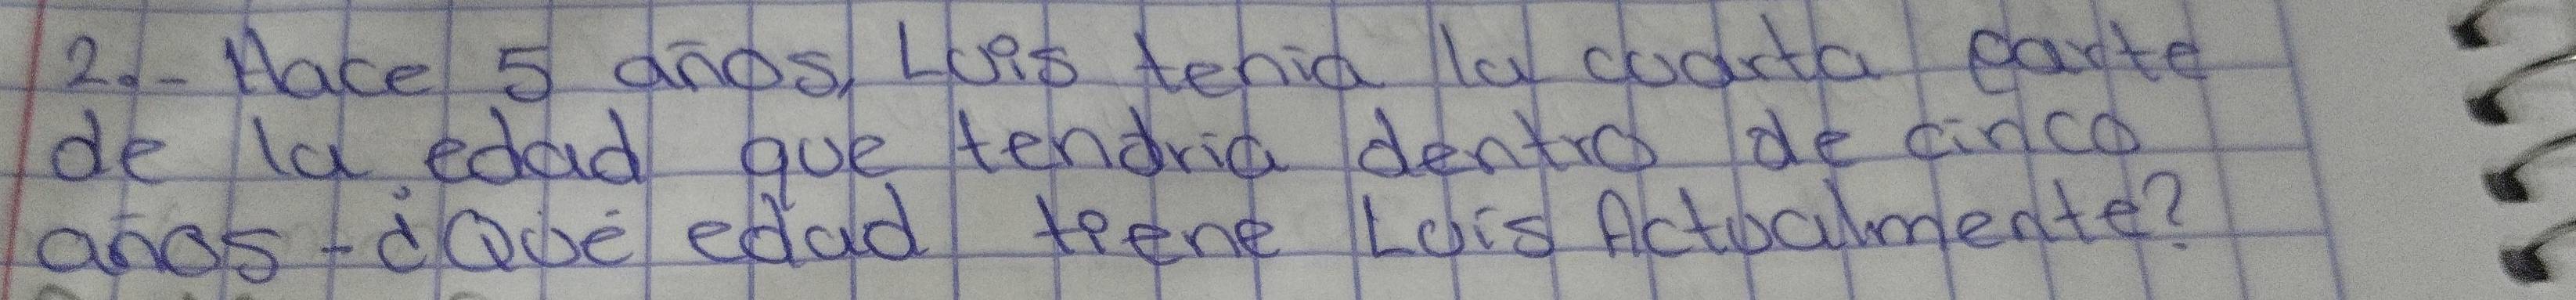 2.- Hace 5 años, Luis tenia la cuarta parte
de la edad que tendria dentro de cinco
años - ¿Qué edad tiene Luis Actualmente?